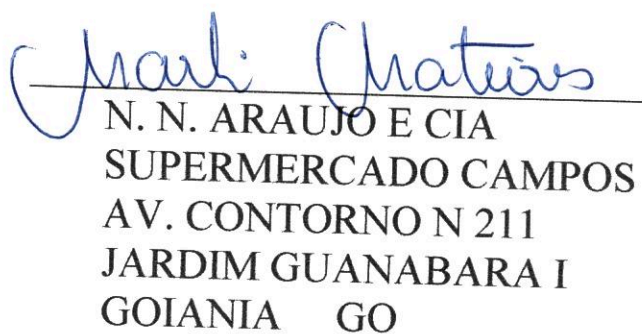 Marli Mateias
N. N. ARAUJO E CIA
SUPERMERCADO CAMPOS
AV. CONTORNO N 211
JARDIM GUANABARA I
GOIANIA GO